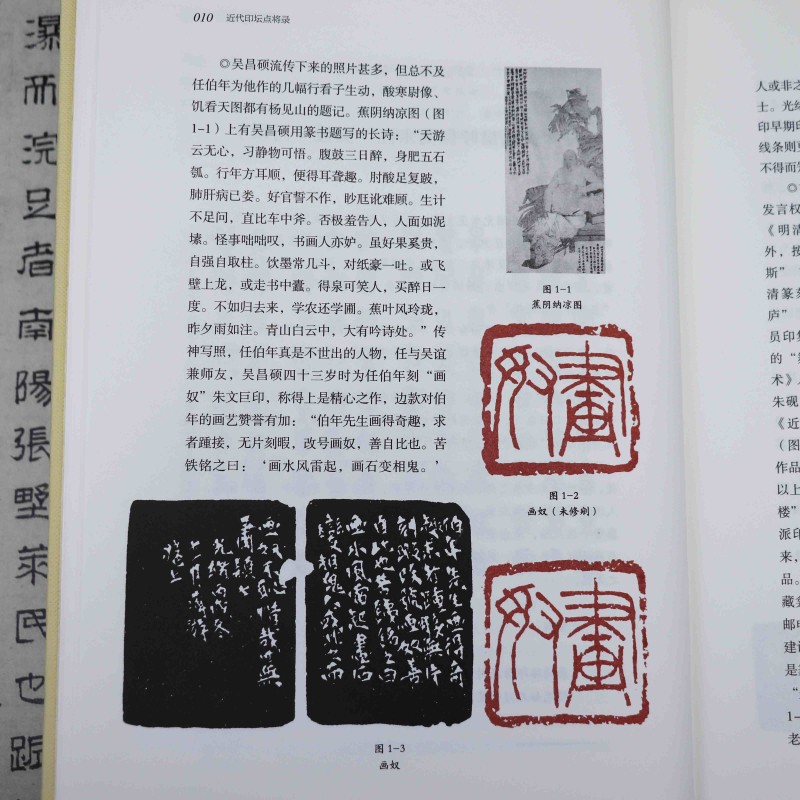 瀑
而
浣
足
者
南
陽
張
墅
萊
民
也
010 近代印坛点将录
◎吴昌硕流传下来的照片甚多，但总不及
任伯年为他作的几幅行看子生动，酸寒尉像、
饥看天图都有杨见山的题记。蕉阴纳凉图（图
1-1）上有吴昌硕用篆书题写的长诗：“天游
云无心，习静物可悟。腹鼓三日醉，身肥五石
瓠。行年方耳顺，便得耳聋趣。肘酸足复跛，
肺肝病已娄。好官誓不作，眇尫讹难顾。生计
不足问，直比车中斧。否极羞告人，人面如泥
塑。怪事咄咄叹，书画人亦妒。虽好果奚贵，
自强自取柱。饮墨常几斗，对纸豪一吐。或飞
壁上龙，或走书中蠹。得泉可笑人，买醉日一
度。不如归去来，学农还学圃。蕉叶风玲珑，
昨夕雨如注。青山白云中，大有吟诗处。”传
神写照，任伯年真是不世出的人物，任与吴谊
兼师友，吴昌硕四十三岁时为任伯年刻“画
奴”朱文巨印，称得上是精心之作，边款对伯
年的画艺赞誉有加：“伯年先生画得奇趣，求
者踵接，无片刻暇，改号画奴，善自比也。苦
铁铭之曰：‘画水风雷起，画石变相鬼。’
图 1-1
蕉阴纳凉图
畫奴
图 1-2
画奴（未修刷）
伯年先生画得奇
畫奴
图 1-3
画奴
人或非之
士。光绪
印早期印
线条则更
不得而知
◎
发言权
《明清
外，按
斯”
清篆刻
庐”
员印集
的“
术》
朱砚
《近
（图
作品
以上
楼”
派印
来，
品。
藏
邮电
建设
是
“
1-
老